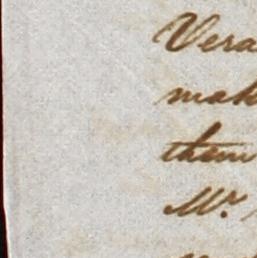 Vera
mak
them
Mr.